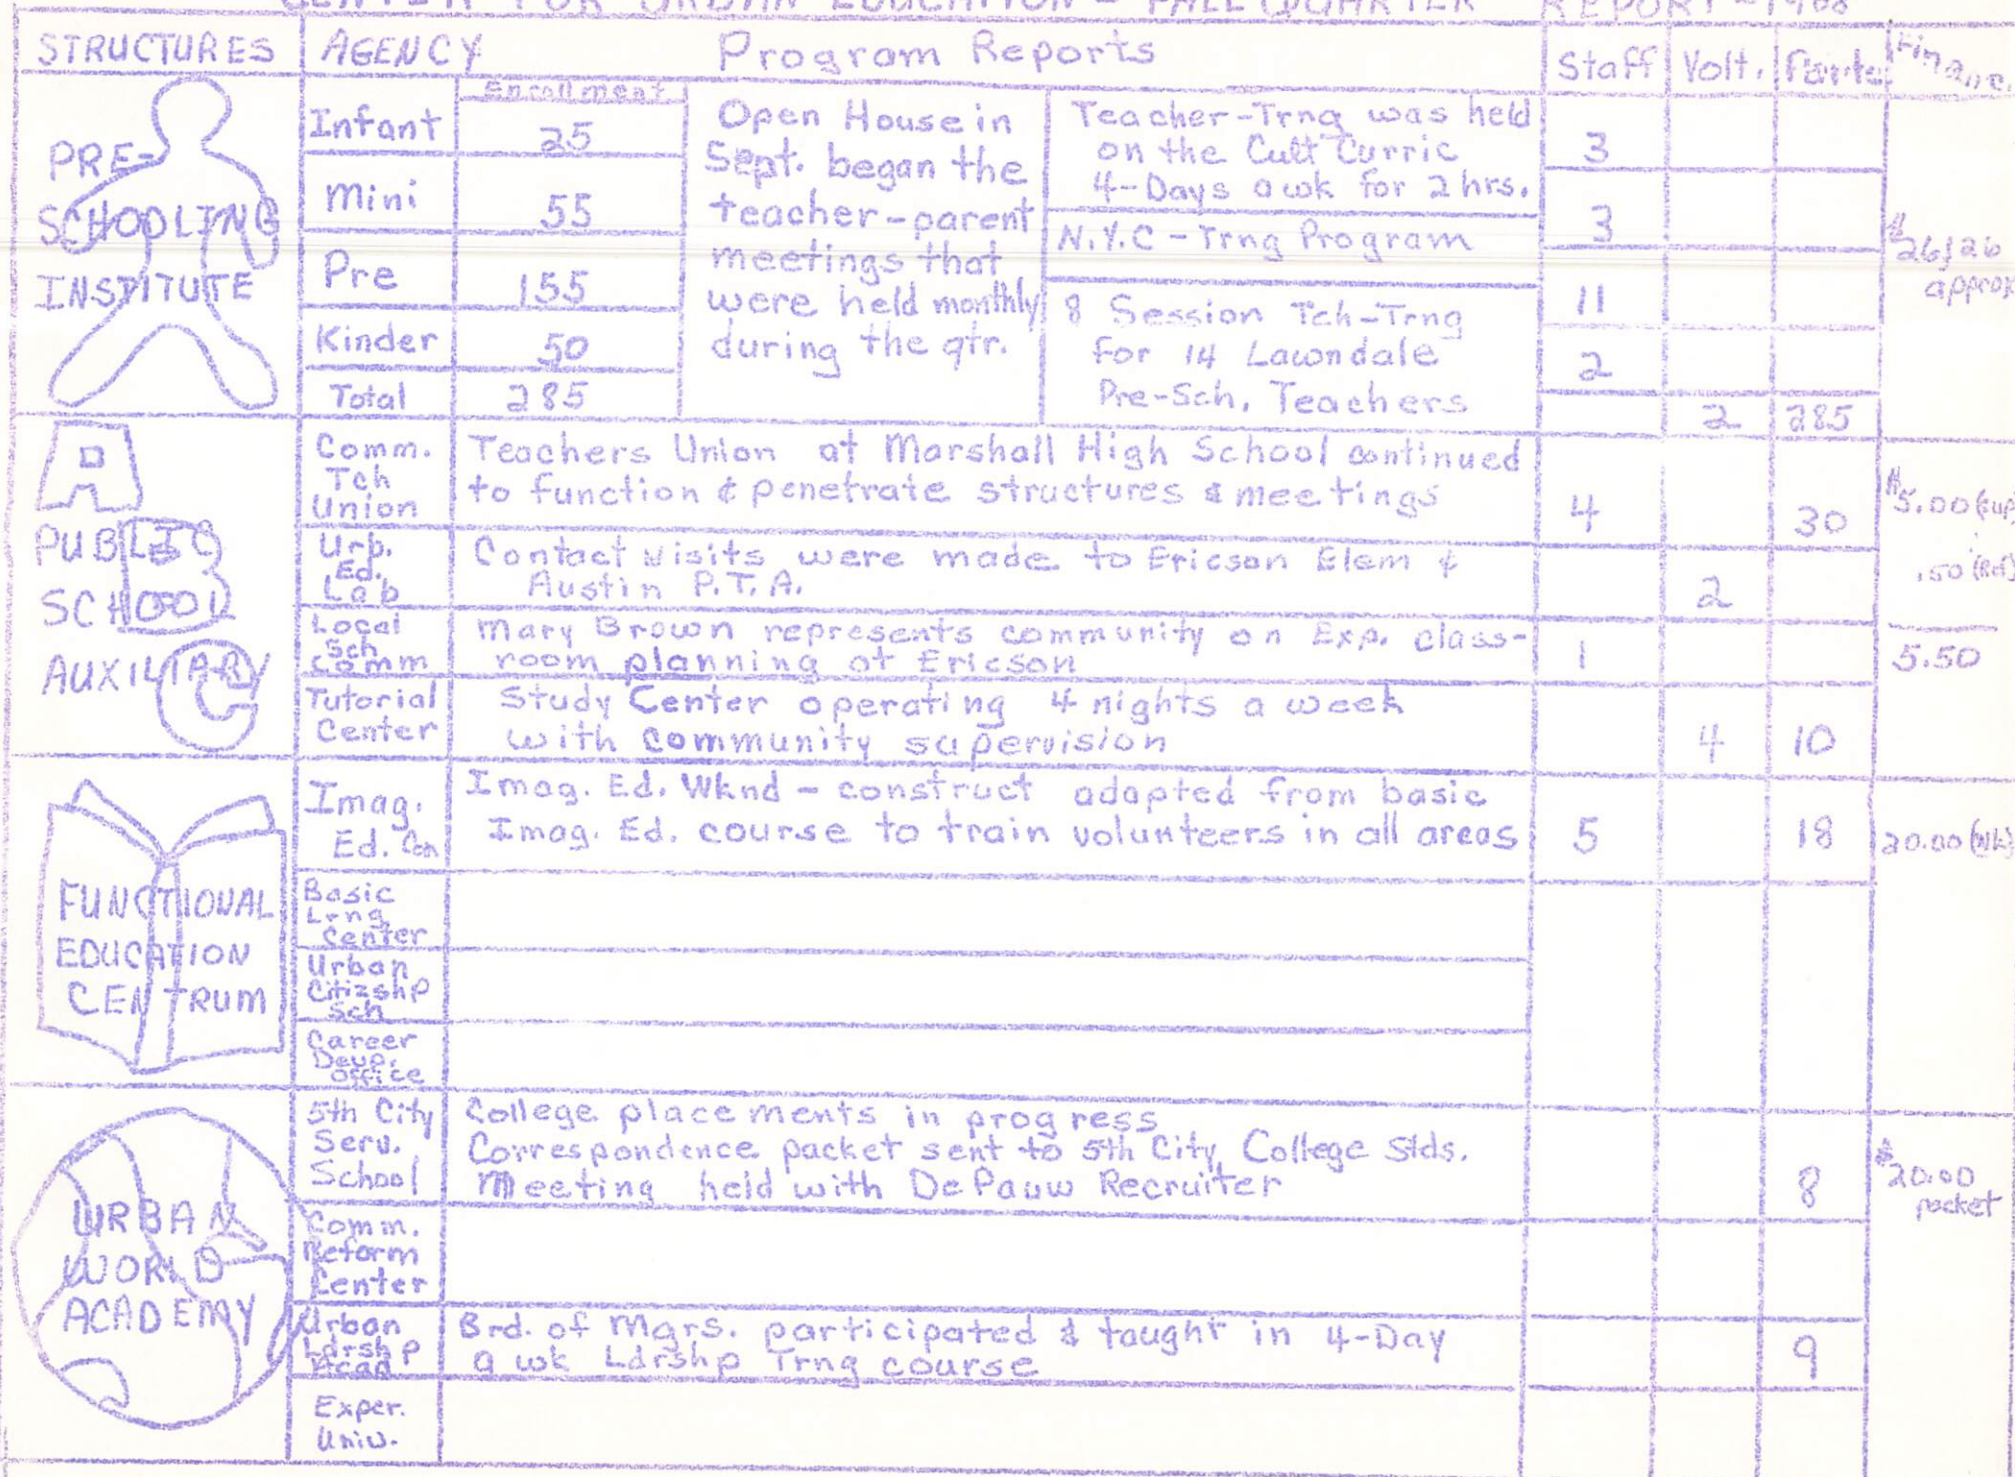 CENTER FOR URBAN EDUCATION - FALL QUARTER REPORT - 1968
STRUCTURES AGENCY Program Reports Staff Volt.
PRE-
SCHOOLING
INSTITUTE
Enrollment
Infant 25
Mini 55
Pre 155
Kinder 50
Total 285
Open House in
Sept. began the
teacher-parent
meetings that
were held monthly
during the qtr.
Teacher-Trng was held
on the Cult Curric
4-Days a wk for 2 hrs.
N.Y.C - Trng Program
8 Session Tch-Trng
for 14 Lawndale
Pre-Sch. Teachers
3
3
11
2
2 285
approx
PUBLIC
SCHOOL
AUXILIARY
Comm.
Tch
Union
Teachers Union at Marshall High School continued
to function & penetrate structures & meetings
4 30
$5.00 (sup
Urb.
Ed.
Lab
Contact visits were made to Ericson Elem &
Austin P.T.A.
2
.50 (Ref)
Local
Sch
Comm
Mary Brown represents community on Exp. class-
room planning at Ericson
1
5.50
Tutorial
Center
Study Center operating 4 nights a week
with community supervision
4 10
FUNCTIONAL
EDUCATION
CENTRUM
Imag.
Ed. Cen
Imag. Ed. Wknd - construct adapted from basic
Imag. Ed. course to train volunteers in all areas
5 18
20.00 (Wk)
Basic
Lrng
Center
Urban
Citizshp
Sch
Career
Devp.
Office
URBAN
WORLD
ACADEMY
5th City
Serv.
School
College placements in progress
Correspondence packet sent to 5th City College Stds.
Meeting held with DePauw Recruiter
8
$20.00
packet
Comm.
Reform
Center
Urban
Ldrshp
Acad
Brd. of Mgrs. participated & taught in 4-Day
a wk Ldrshp Trng course
9
Exper.
Univ.